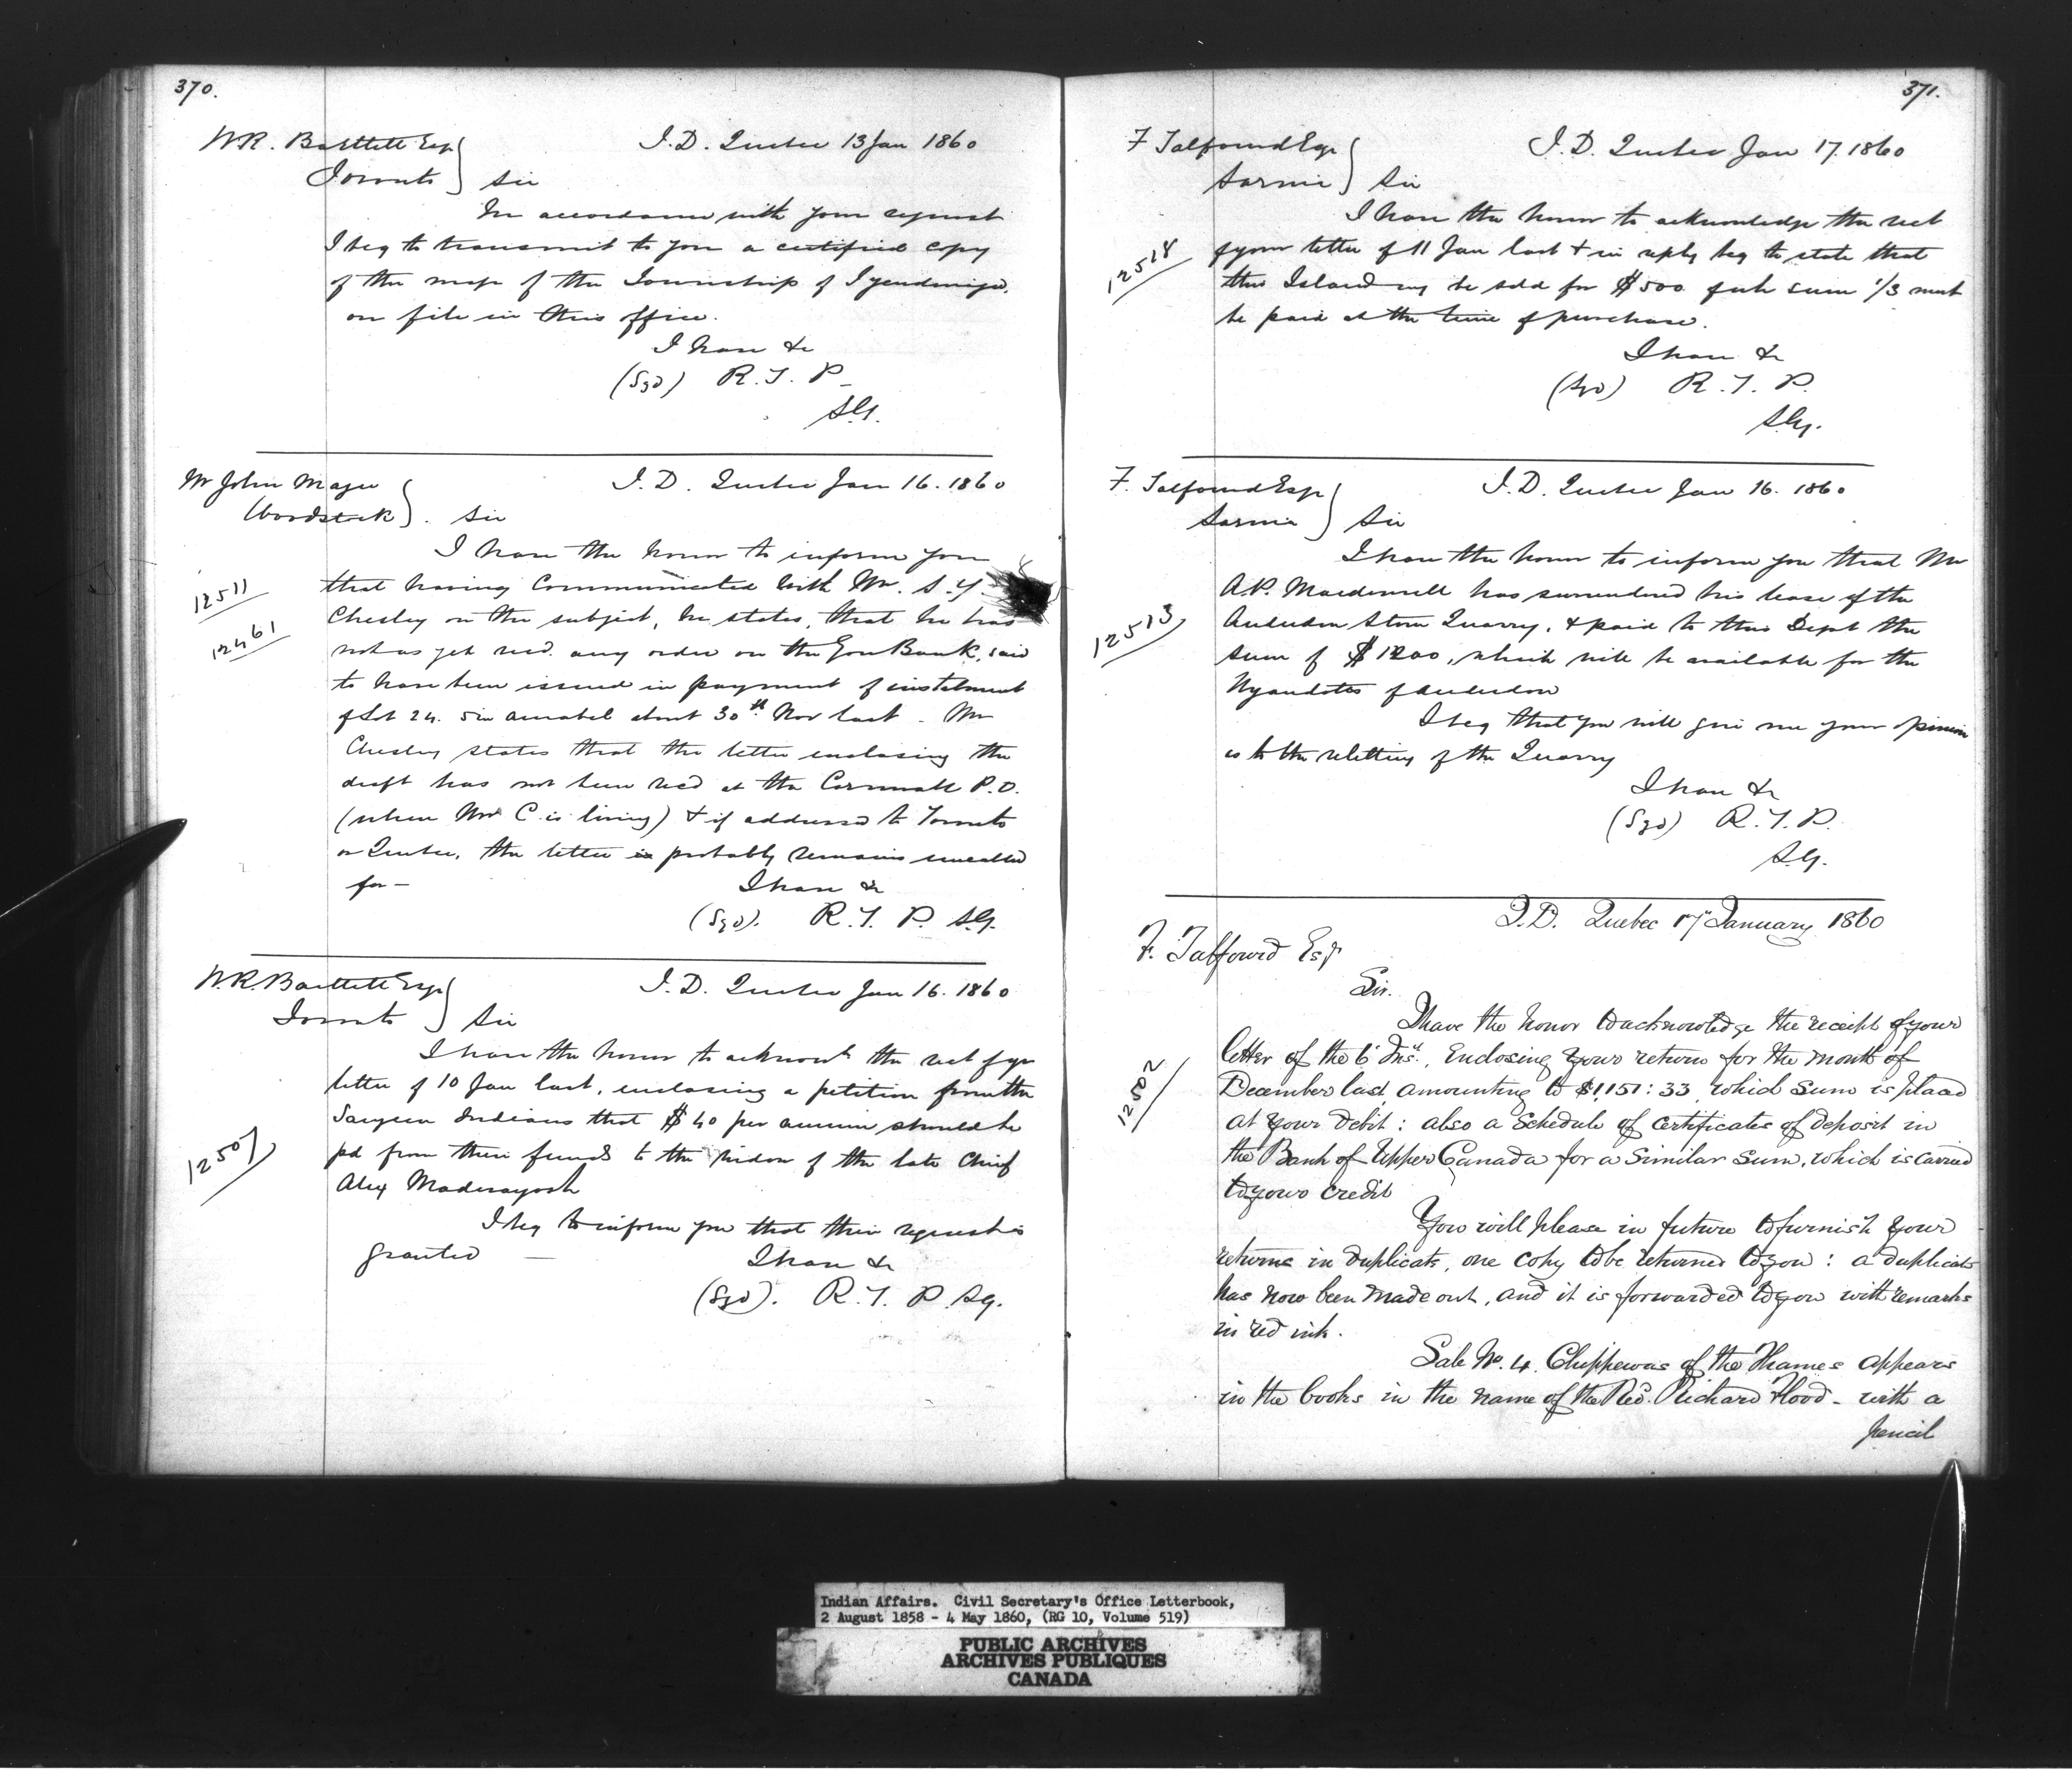 370.
W.R. Bartlett Esq
Toronto
I.D. Quebec 13 Jan 1860
Sir
In accordance with your request
I beg to transmit to you a certified copy
of the map of the Township of Tyendinaga,
on file in this office.
I have &c
(Sgd) R. T. P.
S.G.
Mr John Magee
Woodstock
I.D. Quebec Jan 16. 1860
Sir
12511
12461
I have the honor to inform you
that having communicated with Mr. S. Y.
Chesley on the subject, he states, that he has
not as yet recd. any order on the Gore Bank, said
to have been issued in payment of instalment
of Lot 24. 5 in Amabel about 30th Nov last - Mr
Chesley states that the letter enclosing the
draft has not been recd at the Cornwall P.O.
(where Mr C. is living) & if addressed to Toronto
or Quebec, the letter probably remains uncalled
for -
I have &c
(Sgd). R. T. P. S.G.
W.R. Bartlett Esq
Toronto
I.D. Quebec Jan 16. 1860
Sir
12507
I have the honor to acknow. the rect of yr
letter of 10 Jan last, enclosing a petition from the
Saugeen Indians that $40 per annum should be
pd from their funds to the widow of the late Chief
Alex Madwayosh
I beg to inform you that their request is
granted -
I have &c
(Sgd). R. T. P. S.G.
371.
F Talfourd Esq
Sarnia
I.D. Quebec Jan 17. 1860
Sir
12518
I have the honor to acknowledge the rect
of your letter of 11 Jan last & in reply beg to state that
the Island may be sold for $500 of wh sum 1/3 must
be paid at the time of purchase.
I have &c
(Sgd) R. T. P.
S.G.
F. Talfourd Esq
Sarnia
I.D. Quebec Jan 16. 1860
Sir
12513
I have the honor to inform you that Mr
A.P. Macdonell has surrendered his lease of the
Anderdon Stone Quarry, & paid to this Dept the
sum of $1200, which will be available for the
Wyandotts of Anderdon
I beg that you will give me your opinion
as to the reletting of the Quarry
I have &c
(Sgd) R. T. P.
S.G.
I.D. Quebec 17 January 1860
F. Talfourd Esqr
Sir.
12502
I have the honor to acknowledge the receipt of your
letter of the 6 Inst., Enclosing your return for the month of
December last, amounting to $1,151:33, which sum is placed
at your debit: also a Schedule of certificates of deposit in
the Bank of Upper Canada for a similar sum, which is carried
to your credit
You will please in future to furnish your
returns in duplicate, one copy to be returned to you: a duplicate
has now been made out, and it is forwarded to you with remarks
in red ink.
Sale No. 4. Chippewas of the Thames appears
in the books in the name of the Revd. Richard Flood - with a
pencil
Indian Affairs. Civil Secretary's Office Letterbook,
2 August 1858 - 4 May 1860, (RG 10, Volume 519)
PUBLIC ARCHIVES
ARCHIVES PUBLIQUES
CANADA